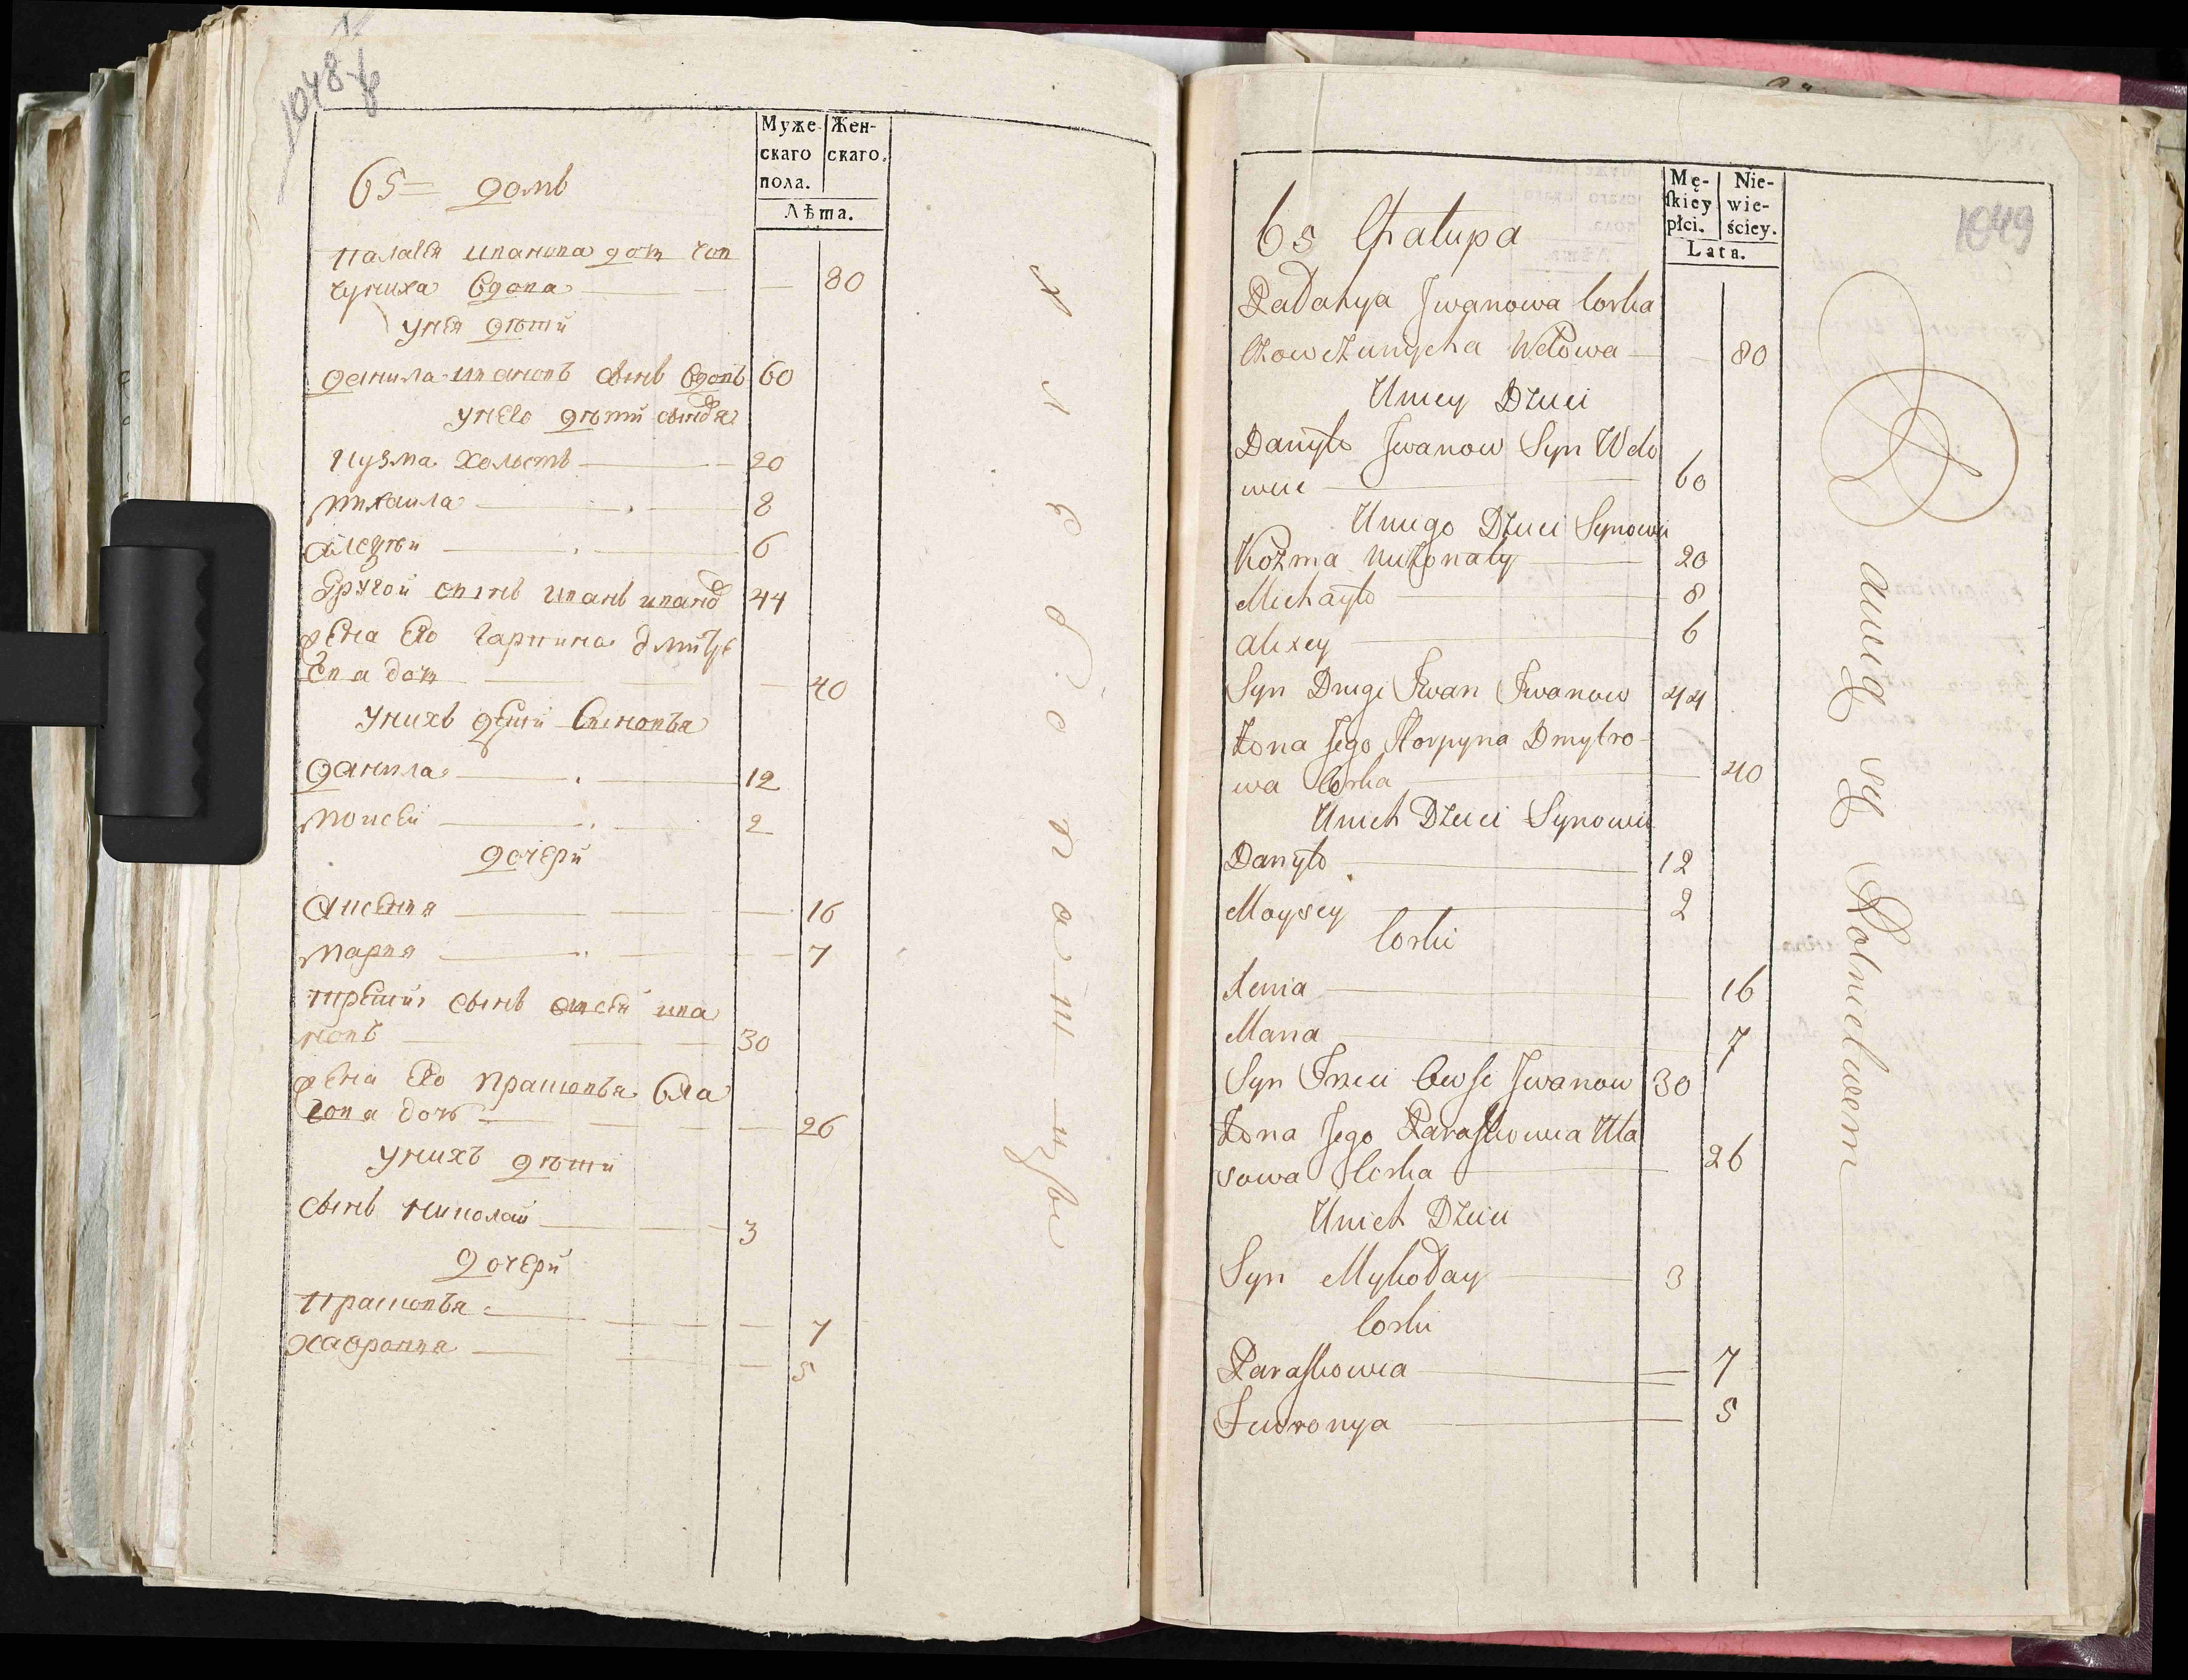 1048
Муже-
скаго
пола.
Жен-
скаго.
Лѣта.
65 домъ
Палагѣя иванова доч чов
чуниха вдова 80
унея дѣти
данила ивановъ сынъ вдовъ 60
унего дѣти сыновя
кузма холостъ 20
михаила 8
алеѯѣи 6
другой сынъ иванъ иванов 44
жена его гарпина дмитр
ева доч 40
унихъ дети сыновья
данила 12
моисеи 2
дочери
аксения 16
мария 7
третии сынъ овсѣи ива
новъ 30
жена его прасковья вла
сова дочь 26
унихъ дѣти
сынъ николаи 3
дочери
прасковья 7
хаврония 5
хлебопашцы
1049
Mę-
skiey
płci.
Nie-
wie-
ściey.
Lata.
65 Chałupa
Pałahya Jwanowa Corka
Czowczunycha Wdowa 80
Uniey Dzieci
Danyło Jwanow Syn Wdo
wiec 60
Uniego Dzieci Synowie
Kozma Nieżonaty 20
Michayło 8
Alexey 6
Syn Drugi Jwan Jwanow 44
Żona Jego Horpyna Dmytro-
wa Corka 40
Unich Dzieci Synowie
Danyło 12
Moysey 2
Corki
Xenia 16
Maria 7
Syn Trzeci Owsi Jwanow 30
Żona Jego Paraskowia Ula
sowa Corka 26
Unich Dzieci
Syn Mykołay 3
Corki
Paraskowia 7
Fewronya 5
Bawią się Rolnictwem